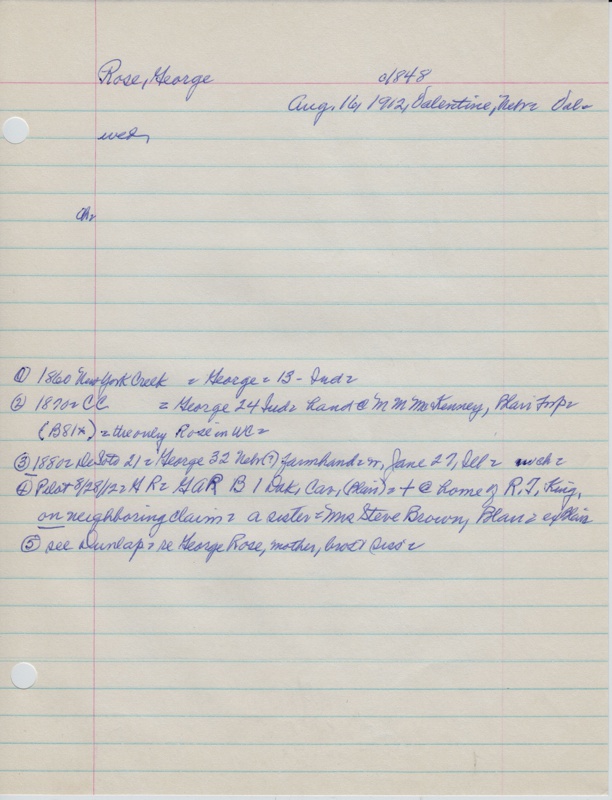 Rose, George c1848
Aug. 16, 1912, Valentine, Nebr= Val=
wed,
ch=
① 1860 New York Creek = George = 13 - Ind=
② 1870= CC = George 24 Ind= hand @ M M McKenney, Blair Twp=
(B81*) = the only Rose in WC=
③ 1880= DeSoto 21= George 32 Nebr(?) farmhand= w, Jane 27, Ill= wch=
④ Pilot 8/28/12= G R= GAR B 1 Dak, Cav, (Blair)= + @ home of R. T. King,
on neighboring claim= a sister= Mrs Steve Brown, Blair= ex Blair
⑤ see Dunlap= re George Rose, mother, bros + sis=